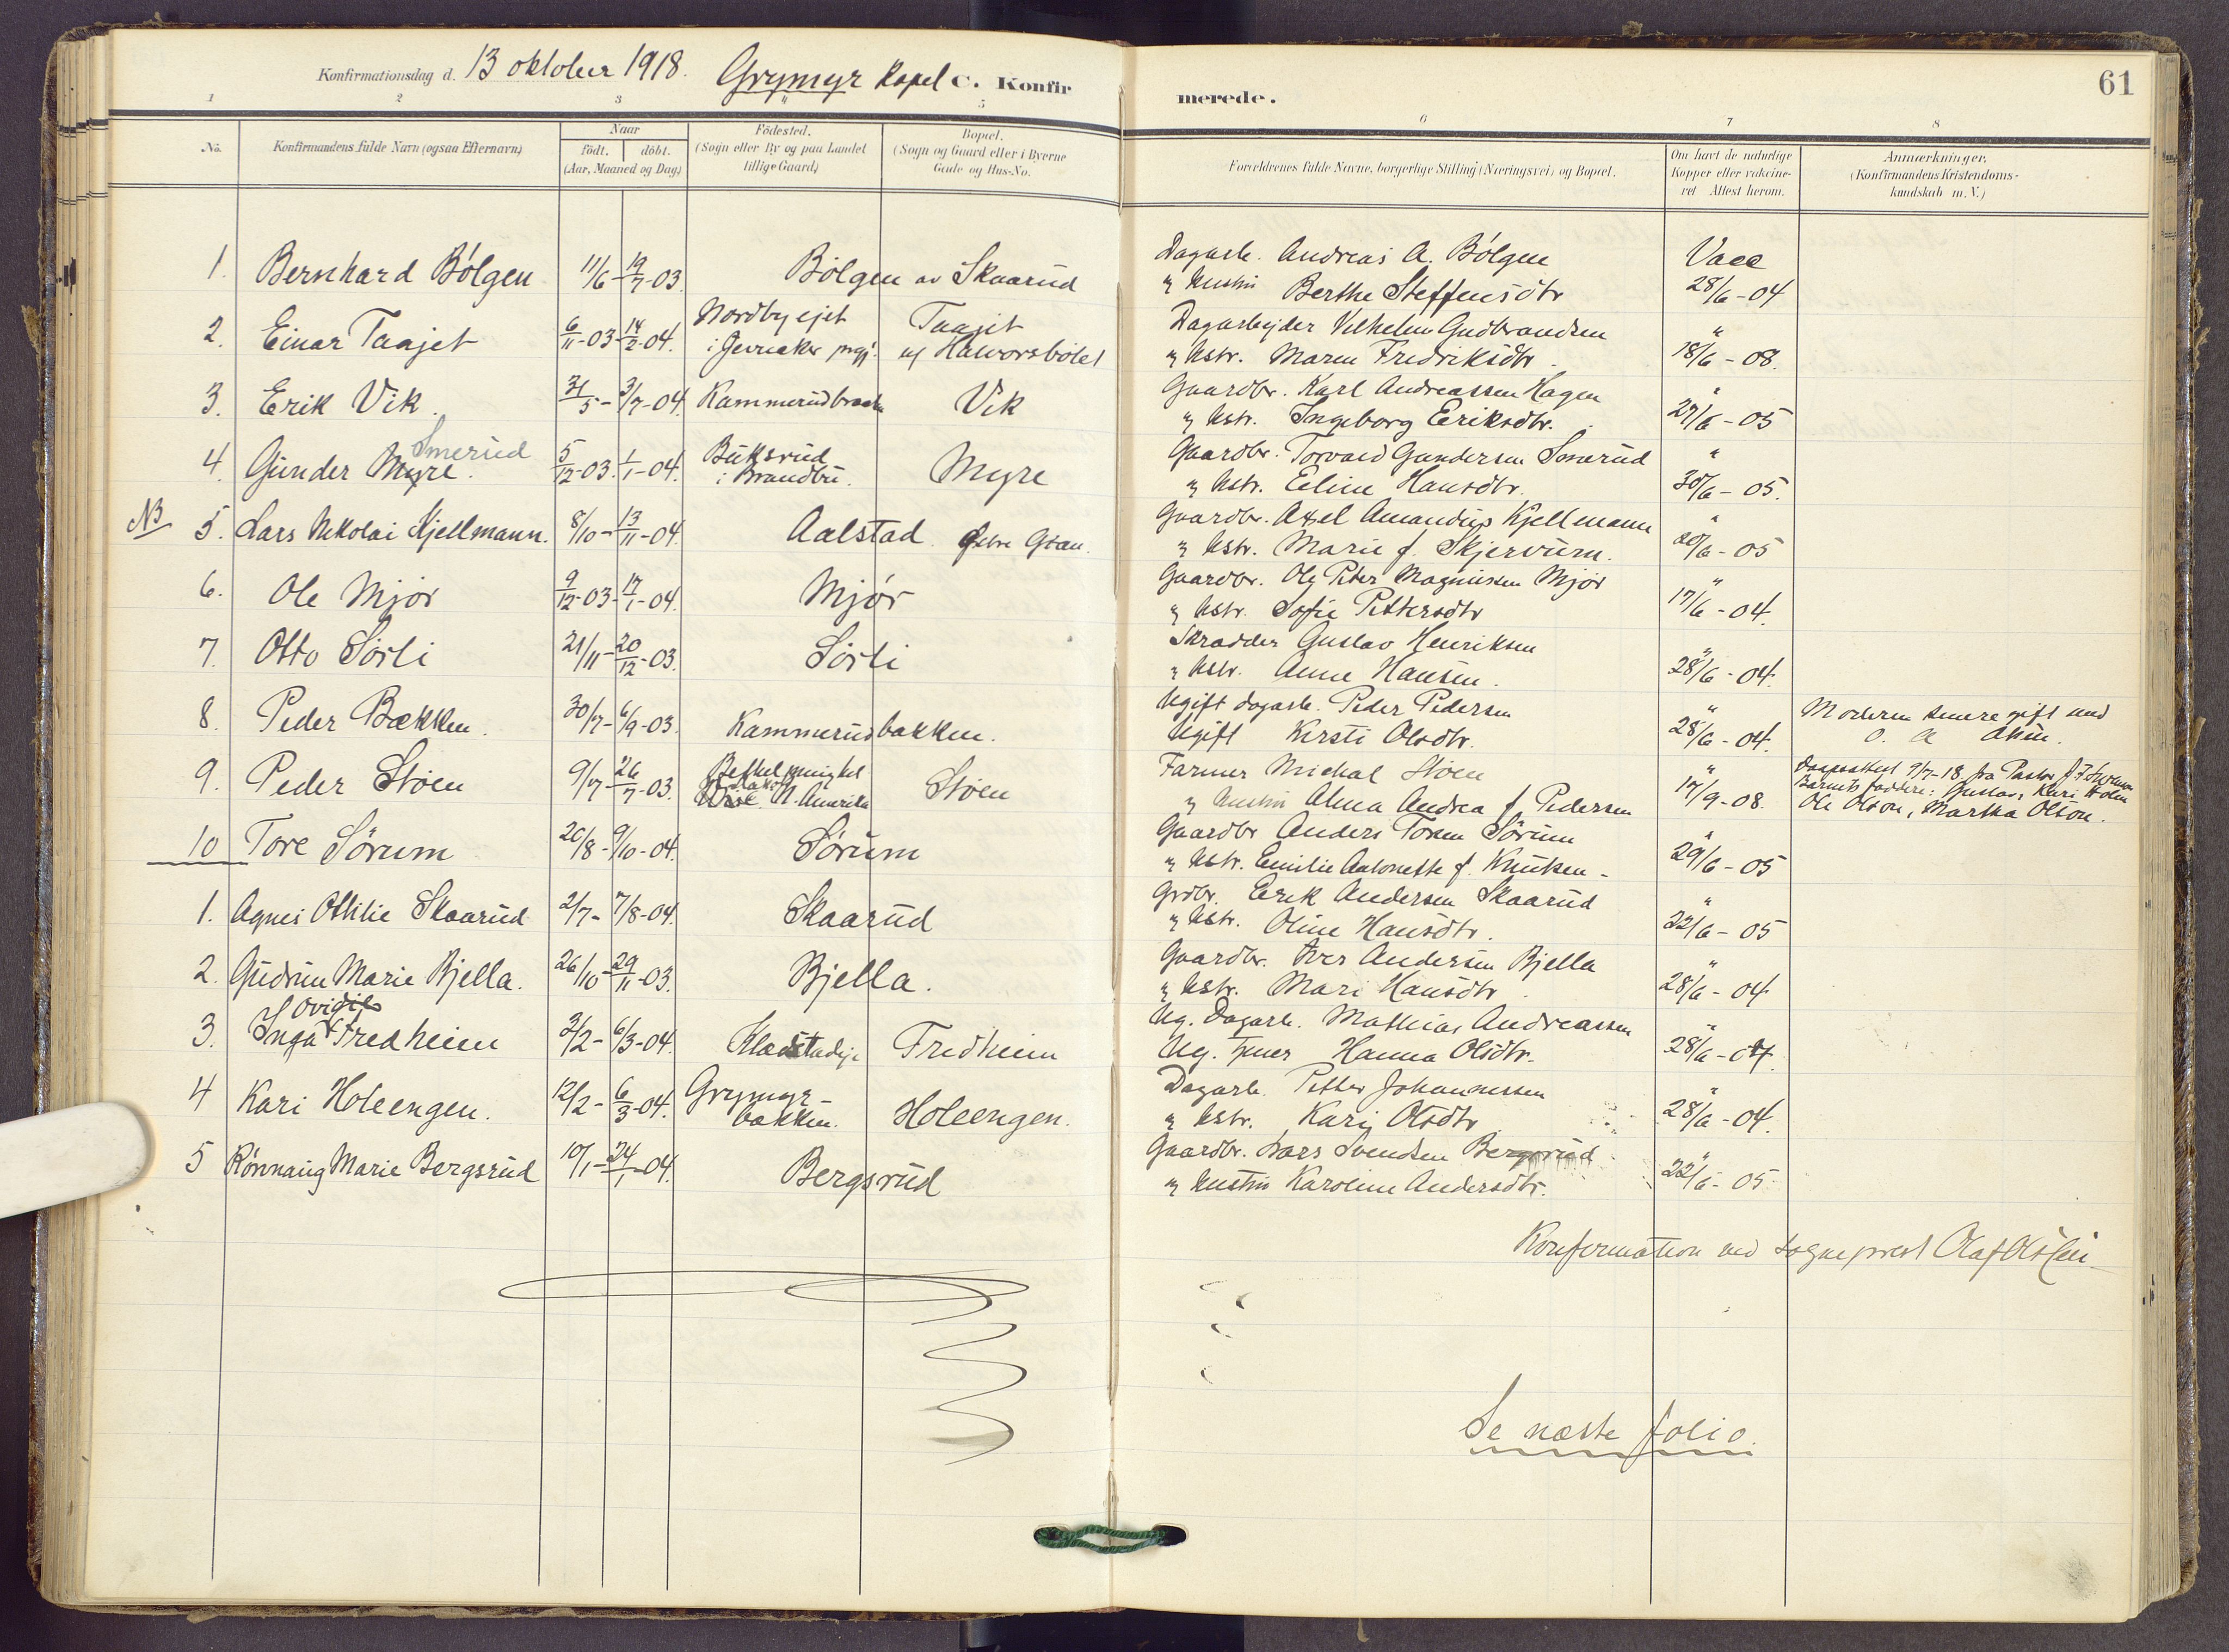 Konfirmationsdag d. 13 oktober 1918. Grymyr Kapel C. Konfirmerede. 61
1 2 3 4 5 6 7 8
No. Konfirmandens fulde Navn (ogsaa Efternavn) Naar født. døbt. (Aar, Maaned og Dag) Fødested. (Sogn eller By og paa Landet tillige Gaard) Bopæl. (Sogn og Gaard eller i Byerne Gade og Hus-No. Forældrenes fulde Navne, borgerlige Stilling (Næringsvei) og Bopæl. Om havt de naturlige Kopper eller vakcineret Attest herom. Anmærkninger. (Konfirmandens Kristendomskundskab m. V.)
1. Bernhard Bølgen 11/6 - 19/7-03. Bølgen av Skaarud Dagarb. Andreas A. Bølgen Vacc
" hustru Berthe Steffensdtr 28/6-04
2. Einar Taajet 6/11-03 - 14/2-04. Nordby ejet i Jevnaker prgj. Taajet u/ Halvorsbølet Dagarbejder Vilhelm Gudbrandsen "
" hstr. Maren Fredriksdtr. 18/6-08.
3. Erik Vik. 31/5 - 3/7-04. Kammerudbraaten Vik Gaardbr. Karl Andreassen Hagen "
" hstr. Ingeborg Eriksdtr. 27/6-05
4. Gunder Myre. Smerud 5/12-03. 1/1-04. Buksrud i Brandbu. Myre Gaardbr. Torvald Gundersen Smerud "
" hstr. Eline Hansdtr. 30/6-05.
NB 5. Lars Nikolai Kjellmann. 8/10 - 13/11-04. Aalstad Øvre Gran. Gaardbr. Axel Amandus Kjellmann "
" hstr. Marie f. Skjervum. 20/6-05
6. Ole Mjør 9/12-03 - 17/1-04. Mjør Gaardbr. Ole Peter Magnussen Mjør "
" hstr. Sofie Pettersdtr 17/6-04.
7. Otto Sørli 21/11 - 20/12-03. Sørli Skradder Gustav Henriksen "
" hstr. Anne Hansen. 28/6-04.
8. Peder Bækken. 30/7 - 6/9-03. Kammerudbakken. Ugift dagarb. Peder Pedersen " Moderen senere gift med
Ugift Kirsti Olsdtr. 28/6-04. O. A
9. Peder Støen 9/7 - 26/7-03. Bethel N. Amerika Støen Farmer Michal Støen " Daapsattest 9/7-18 fra Pastor
" hustru Alma Andrea f. Pedersen 17/9-08. Barnets faddere: Gustav, Kari Holm
Ole Olson, Martha Olson.
10 Tore Sørum 20/8 - 9/10-04. Sørum Gaardbr Anders Toresen Sørum "
" hstr. Emilie Antonette f. Knutsen - 29/6-05
1. Agnes Othilie Skaarud 2/7 - 7/8-04. Skaarud Grdbr. Erik Andersen Skaarud "
" hstr. Oline Hansdtr. 22/6-05
2. Gudrun Marie Bjella. 26/10 - 29/11-03. Bjella. Gaardbr. Iver Andersen Bjella "
" hstr. Mari Hansdtr. 28/6-04
3. Inga Ovidie Fredheim 3/2 - 6/3-04. Klæstadeje Fredheim Ug. Dagarb. Mathias Andreassen "
Ug. tjener Hanna Olsdtr. 28/6-04.
4 Kari Holeengen. 12/2 - 6/3-04. Grymyr-bakken. Holeengen. Dagarb. Petter Johannessen "
" hstr. Kari Olsdtr 28/6-04.
5 Rønnaug Marie Bergsrud 10/1 - 24/1-04. Bergsrud Gaardbr. Lars Svendsen Bergsrud "
" hustru Karoline Andersdtr. 22/6-05
Konfirmation ved sogneprest Olaf Olssen
Se næste folio.